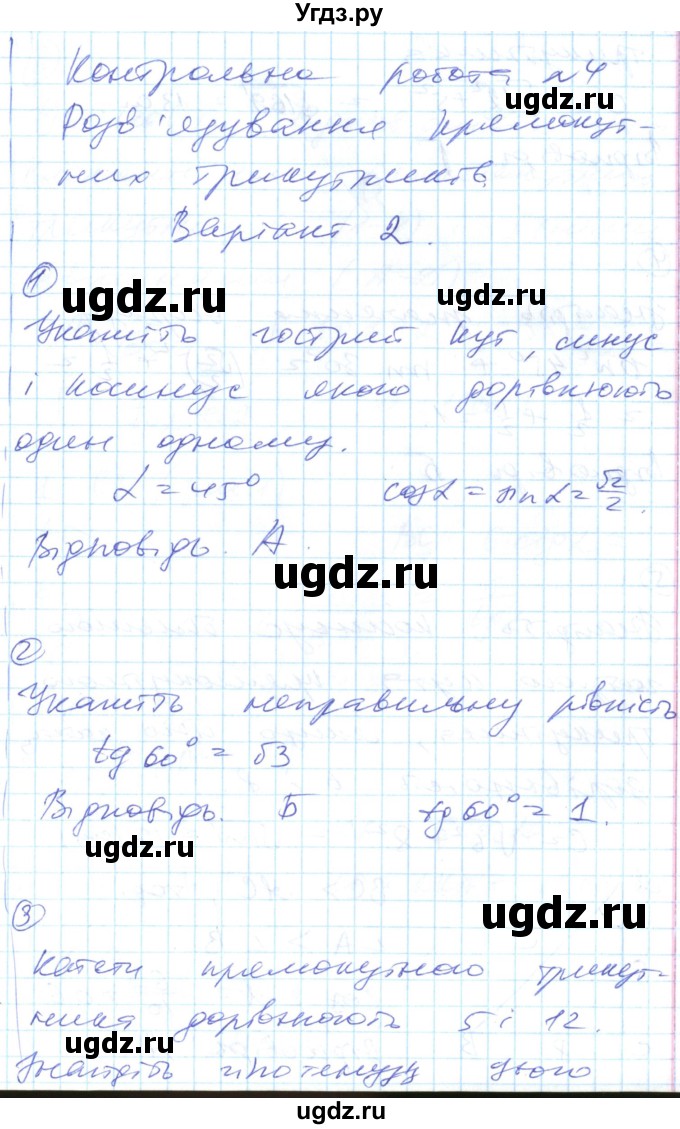 Угдз.ру
Контрольна робота №4
Розв'язування прямокут-
них трикутників
Варіант 2.
1
Укажіть гострий кут, синус
і косинус якого дорівнюють
один одному.
α = 45° cosα = sinα = √2/2.
Відповідь. А.
2
Укажіть неправильну рівність
tg 60° = √3
Відповідь. Б tg 60° = 1.
3
Катети прямокутного трикут-
ника дорівнюють 5 і 12.
Знайдіть гіпотенузу цього
ugdz.ru
ugdz.ru
ugdz.ru
ugdz.ru
ugdz.ru
ugdz.ru
ugdz.ru
ugdz.ru
ugdz.ru